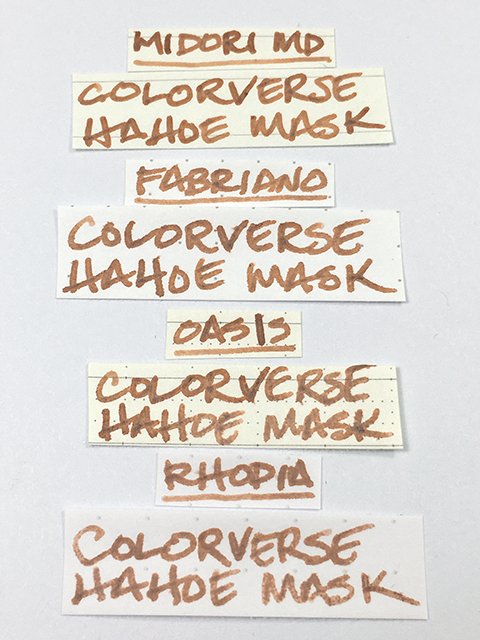 MIDORI MD
COLORVERSE
HAHOE MASK
FABRIANO
COLORVERSE
HAHOE MASK
OASIS
COLORVERSE
HAHOE MASK
RHODIA
COLORVERSE
HAHOE MASK